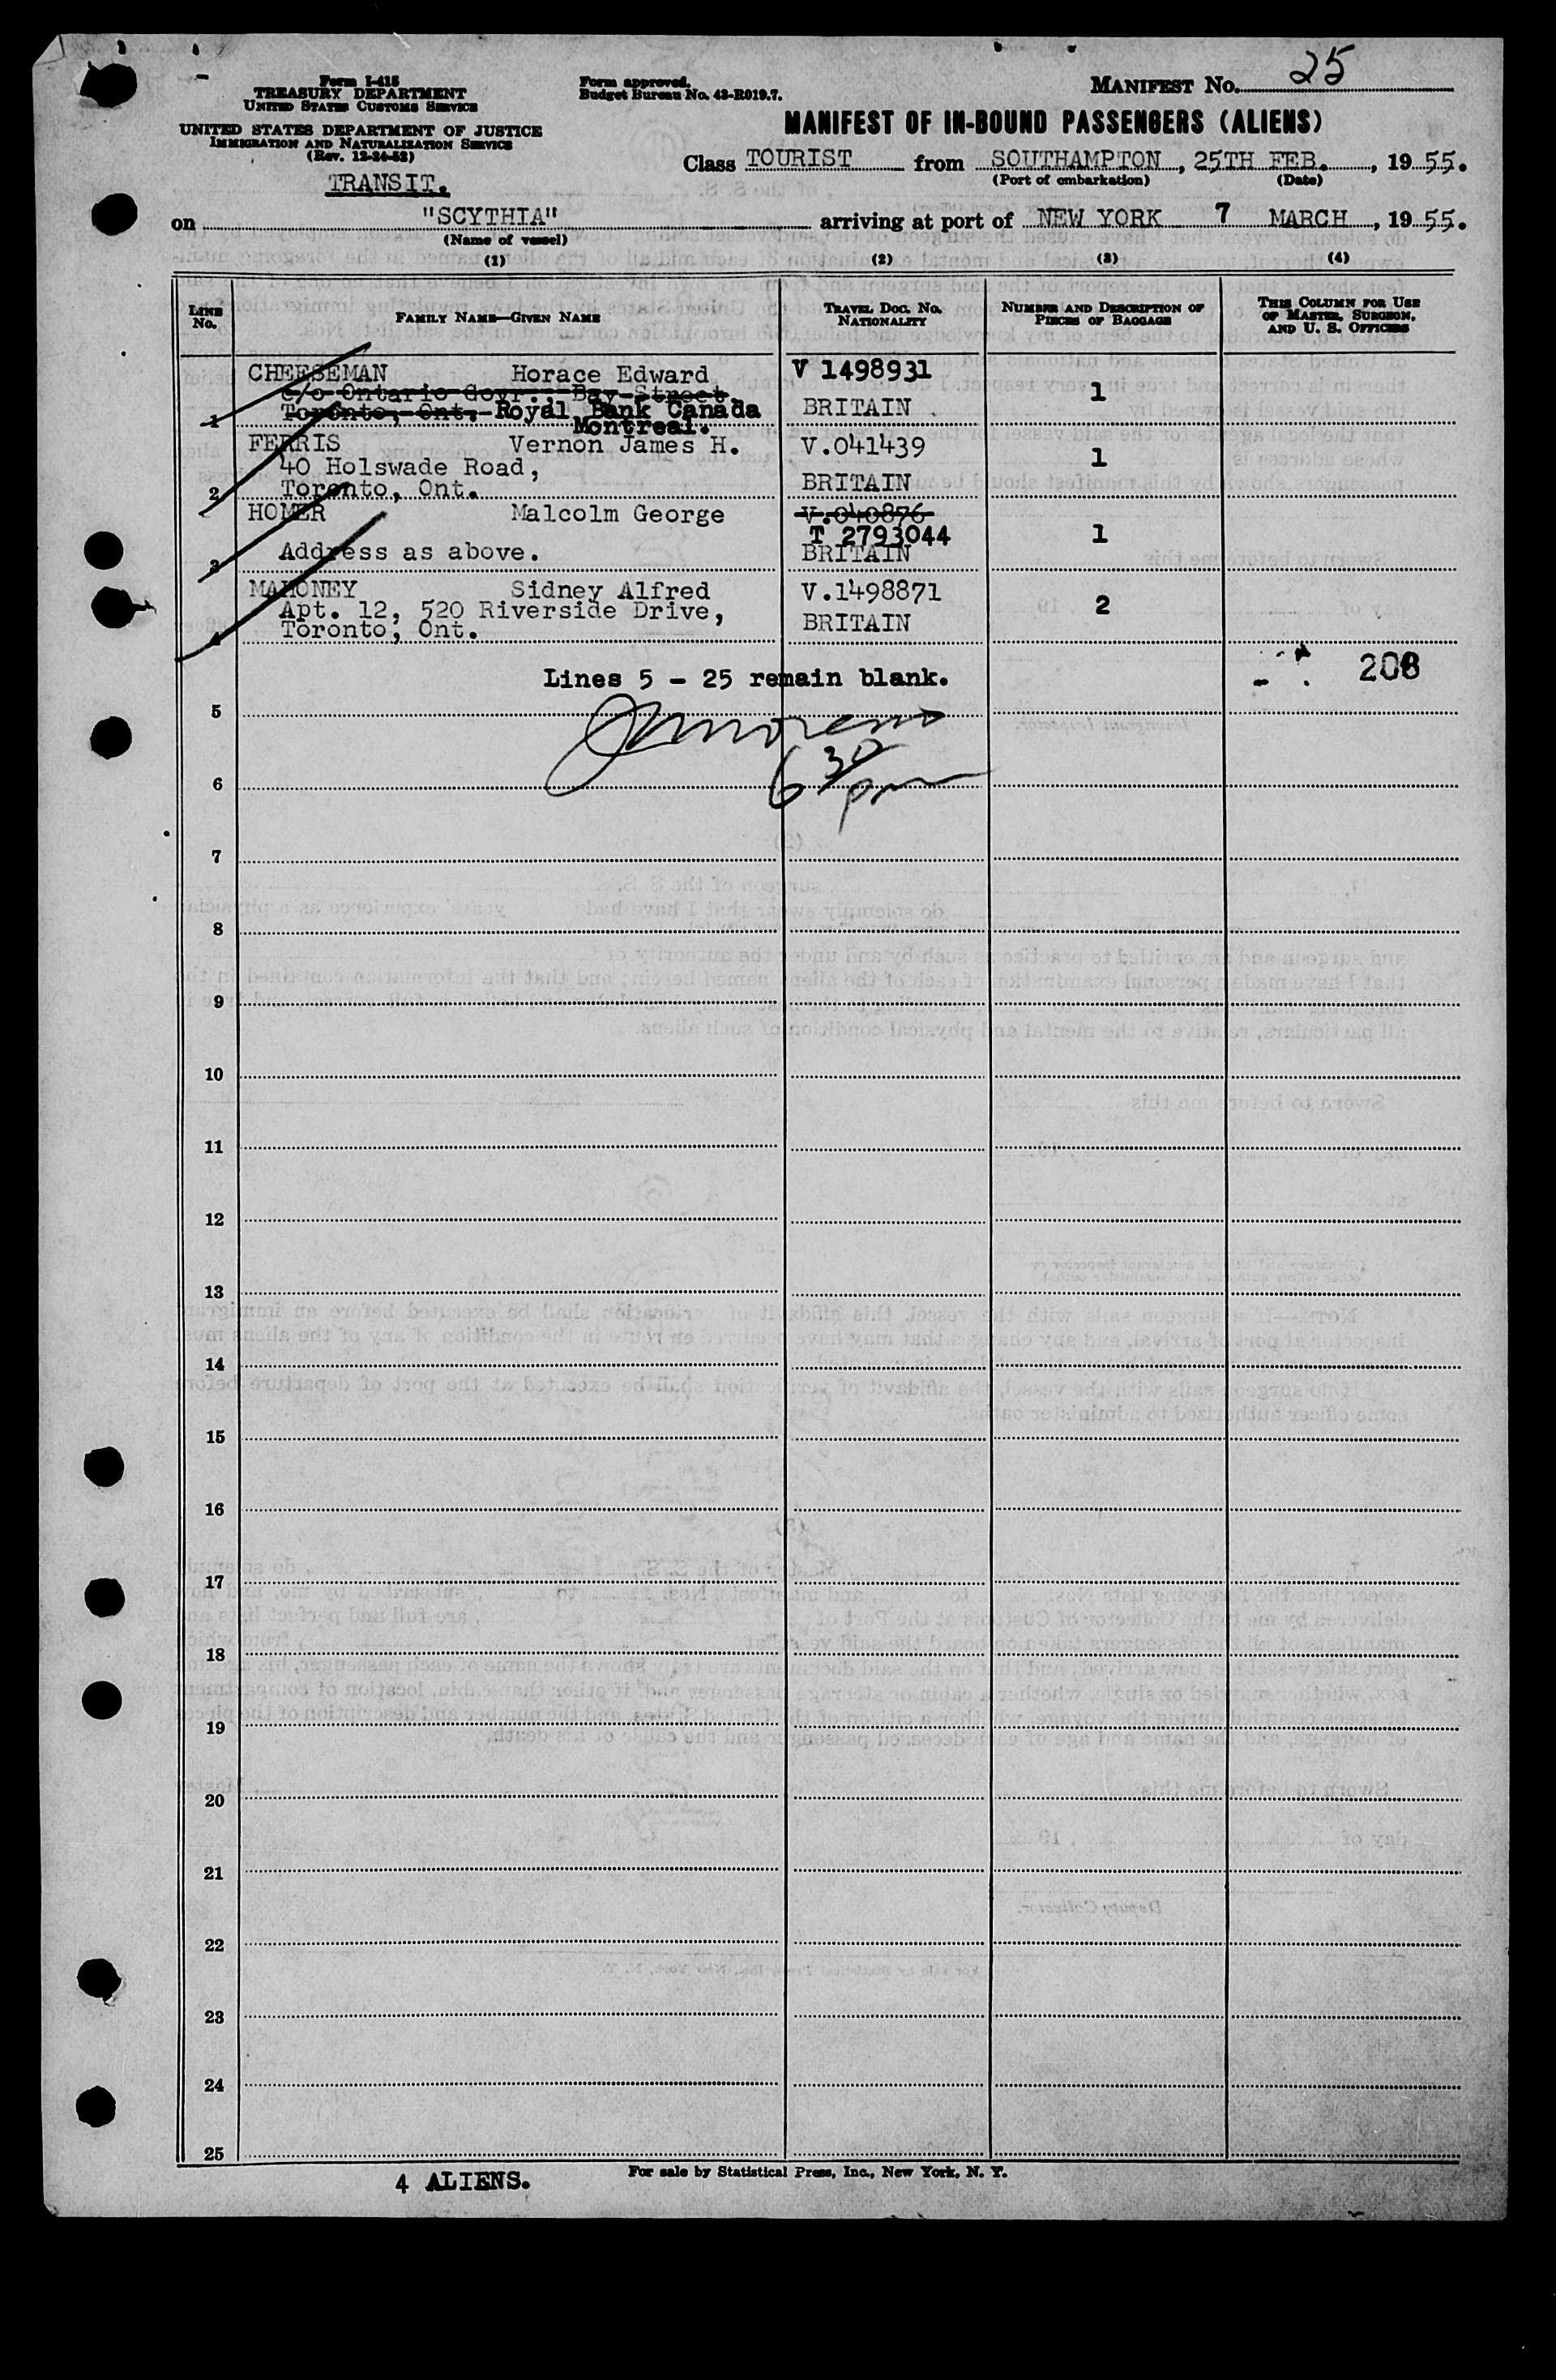 Form I-415
TREASURY DEPARTMENT
UNITED STATES CUSTOMS SERVICE
UNITED STATES DEPARTMENT OF JUSTICE
IMMIGRATION AND NATURALIZATION SERVICE
(Rev. 12-24-52)
TRANSIT.
Form approved.
Budget Bureau No. 43-R019.7.
MANIFEST No. 25
MANIFEST OF IN-BOUND PASSENGERS (ALIENS)
Class TOURIST from SOUTHAMPTON, 25TH FEB., 1955.
(Port of embarkation) (Date)
on "SCYTHIA" arriving at port of NEW YORK 7 MARCH, 1955.
(Name of vessel)
(1) (2) (3) (4)
LINE No. FAMILY NAME—GIVEN NAME TRAVEL DOC. NO. NATIONALITY NUMBER AND DESCRIPTION OF PIECES OF BAGGAGE THIS COLUMN FOR USE OF MASTER, SURGEON, AND U. S. OFFICERS
CHEESEMAN Horace Edward V 1498931
c/o Ontario Govr., Bay Street. 1
1 Toronto, Ont. Royal Bank Canada BRITAIN
Montreal.
FERRIS Vernon James H. V.041439
40 Holswade Road, 1
2 Toronto, Ont. BRITAIN
HOMER Malcolm George V.040876
T 2793044 1
3 Address as above. BRITAIN
MAHONEY Sidney Alfred V.1498871
Apt. 12, 520 Riverside Drive, 2
4 Toronto, Ont. BRITAIN
208
Lines 5 - 25 remain blank.
5
6 30 pm
6
7
8
9
10
11
12
13
14
15
16
17
18
19
20
21
22
23
24
25
4 ALIENS.
For sale by Statistical Press, Inc., New York, N. Y.